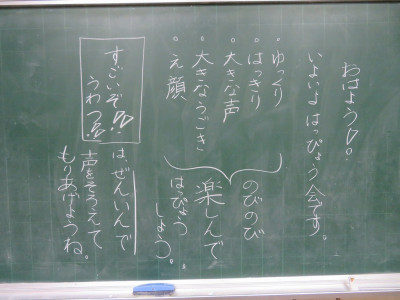 おはよう!!
いよいよはっぴょう会です。
。ゆっくり
。はっきり
。大きな声
。大きなうごき
。え顔
のびのび
楽しんで
はっぴょう
しよう。
すごいぞ!!
うわっ!!
は、ぜんいんで
声をそろえて
もりあげようね。